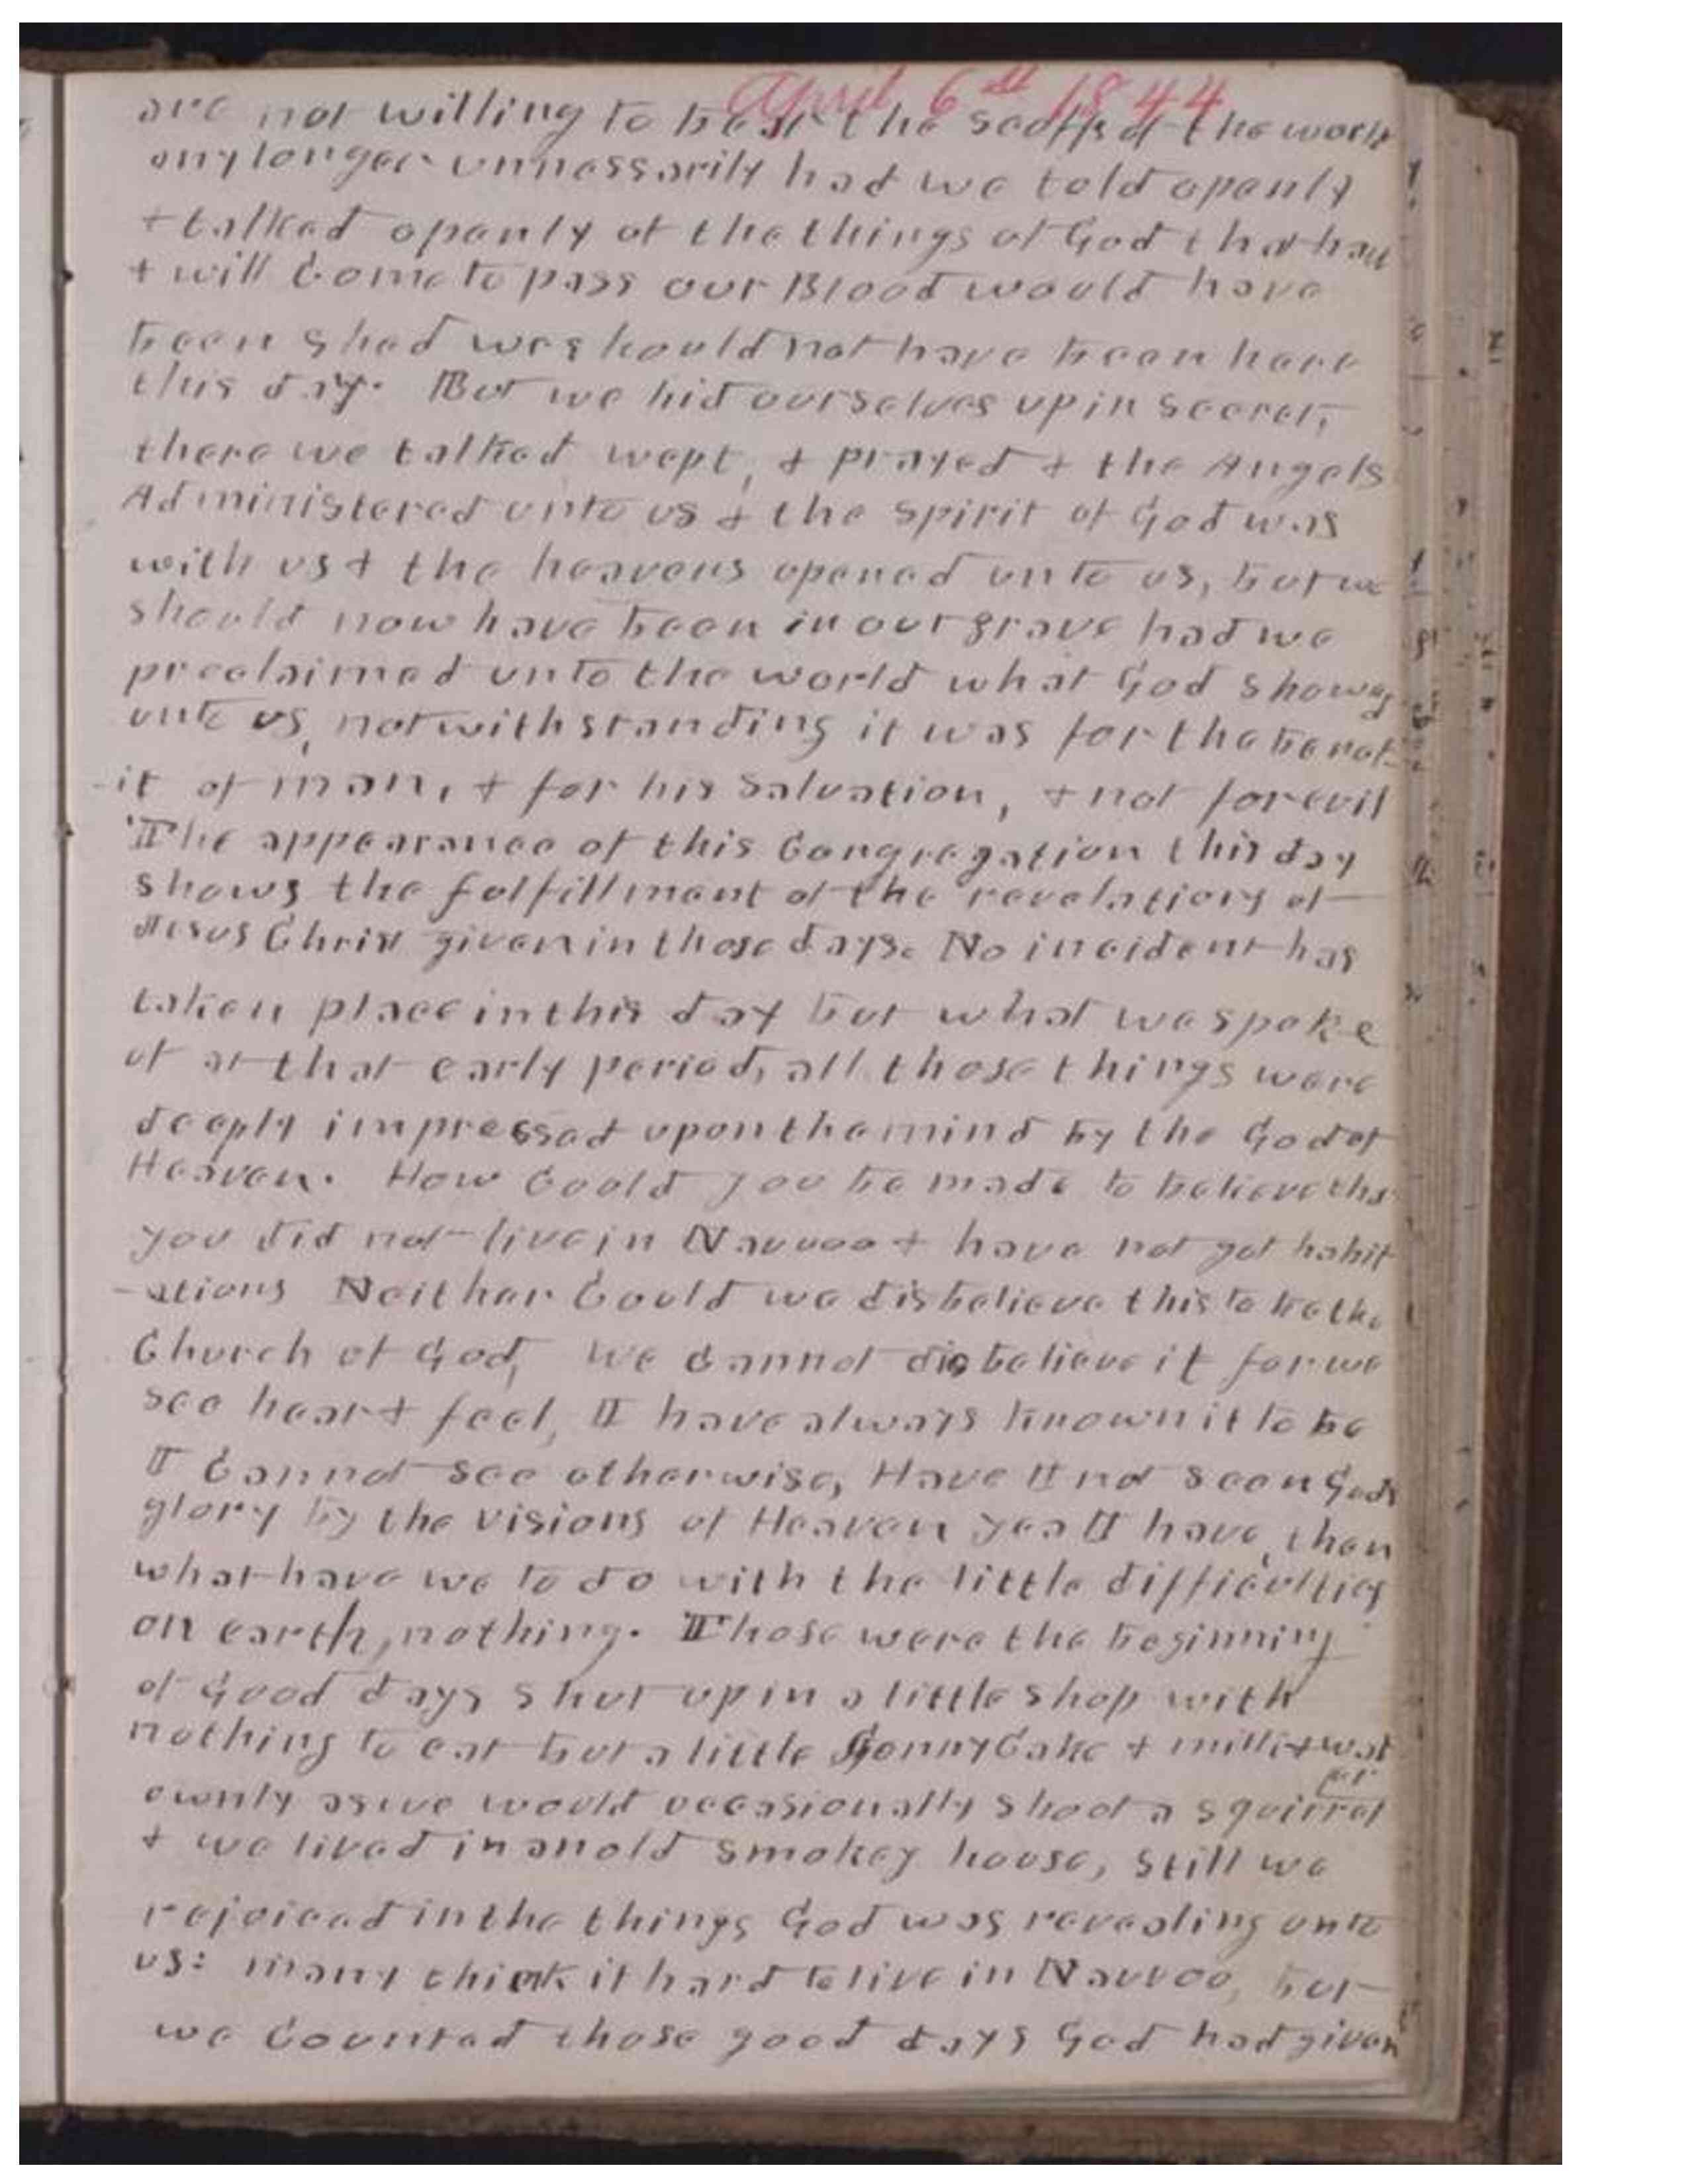 April 6th 1844
are not willing to bear the scoffs of the world
any longer unnessarily had we told openly
+ talked openly of the things of God that have
+ will Come to pass our Blood would have
been shed we should not have been here
this day. But we hid ourselves up in secret,
there we talked wept, + prayed + the Angels
Administered unto us + the spirit of God was
with us + the heavens opened unto us, but we
should now have been in our grave had we
proclaimed unto the world what God showed
unto us, notwithstanding it was for the benef-
-it of man, + for his salvation, + not for evil
The appearance of this Congregation this day
shows the fulfillment of the revelations of
Jesus Christ given in those days. No incident has
taken place in this day but what we spoke
of at that early period, all those things were
deeply impressed upon the mind by the God of
Heaven. How Could you be made to believe tha
you did not live in Nauvoo + have not got habit
-ations Neither Could we disbelieve this to be the
Church of God, We Cannot disbelieve it for we
see hear + feel, I have always known it to be
I Cannot see otherwise, Have I not seen Gods
glory by the visions of Heaven yea I have, then
what have we to do with the little difficulties
on earth, nothing. Those were the beginning
of Good days shut up in a little shop with
nothing to eat but a little Jonny Cake + milk + wat
er
ownly as we would occasionally shoot a squirrel
+ we lived in an old smokey house, still we
rejoiced in the things God was revealing unto
us: many think it hard to live in Nauvoo, but
we Counted those good days God had given